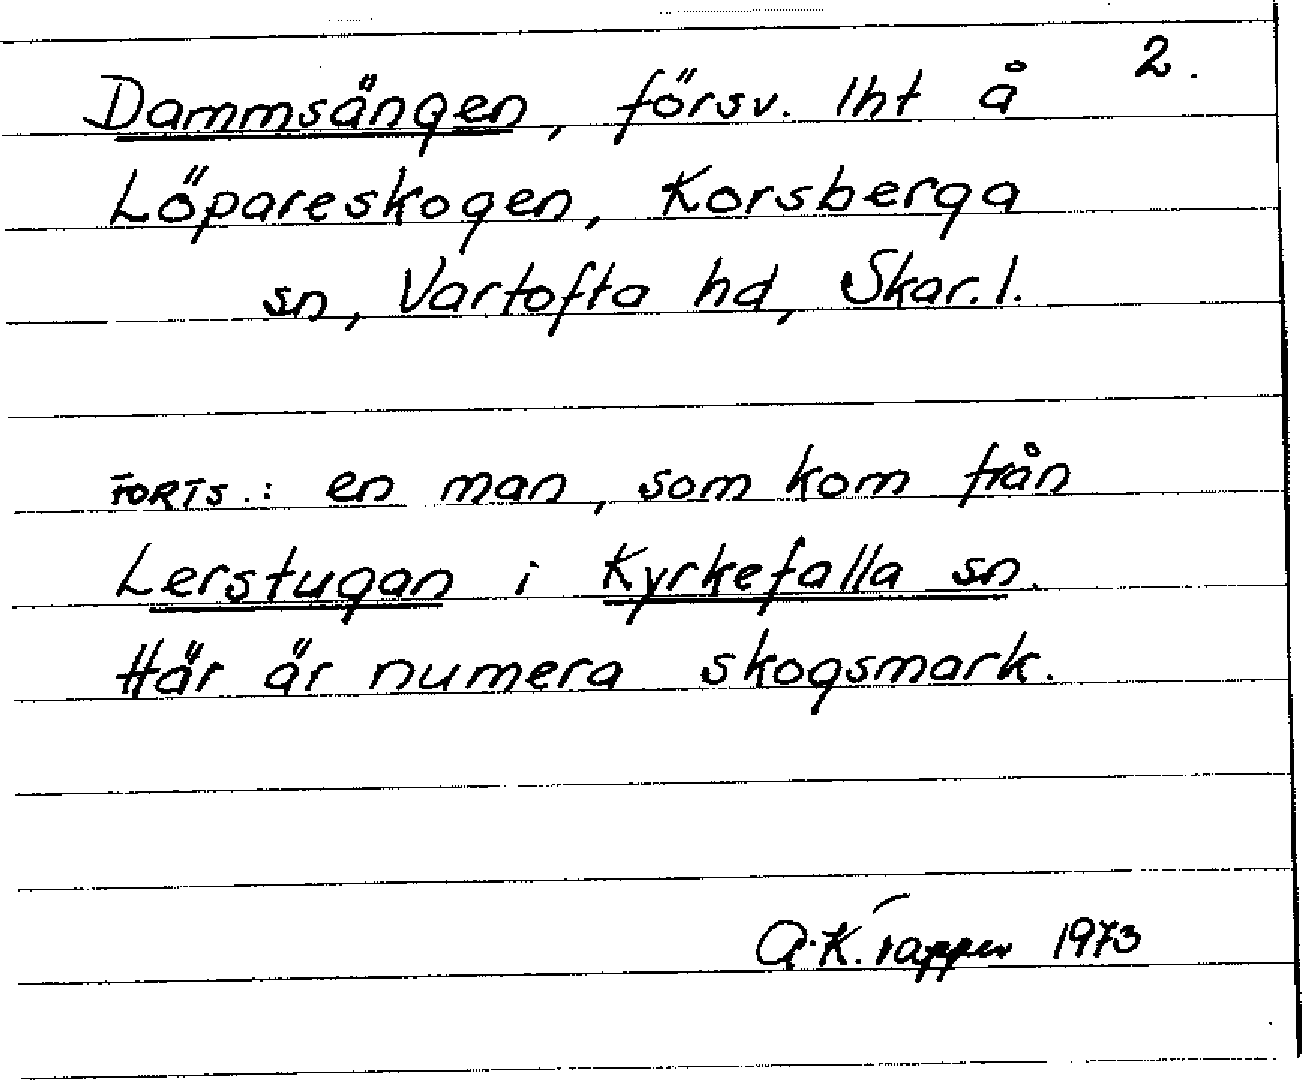 2.
Dammsängen, försv. lht å
Löpareskogen, Korsberga
sn, Vartofta hd, Skar. l.
FORTS.: en man, som kom från
Lerstugan i Kyrkefalla sn.
Här är numera skogsmark.
A.K. Tapper 1973